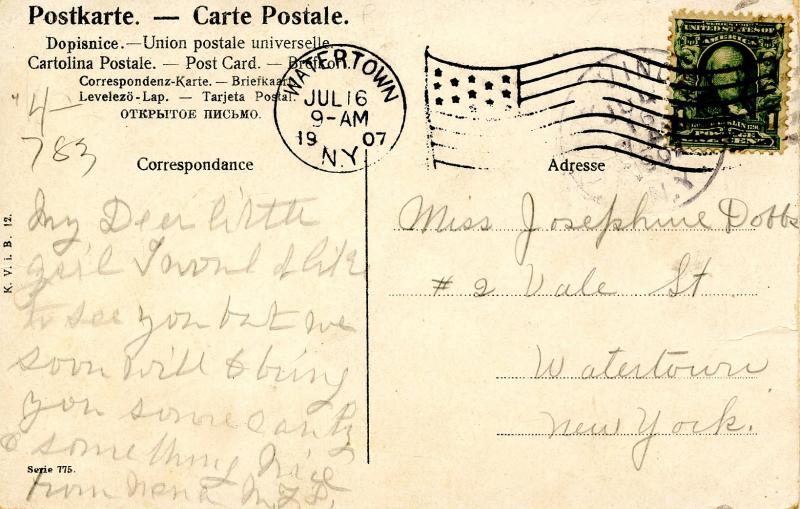 Postkarte. — Carte Postale.
Dopisnice. — Union postale universelle.
Cartolina Postale. — Post Card. — Brefkort.
Correspondenz-Karte. — Briefkaart
Levelező-Lap. — Tarjeta Postal.
ОТКРЫТОЕ ПИСЬМО.
4
783
WATERTOWN
JUL 16
9-AM
19 07
N.Y.
SERIES 1902
UNITED STATES OF AMERICA
1
POSTAGE
Correspondance
Adresse
My Deer little
girl I would like
to see you but we
soon will & bring
you some candy
& something nice
from Nena
Miss Josephine Dobbs
# 2 Vale St
Watertown
New York.
K. V. i. B. 12.
Serie 775.